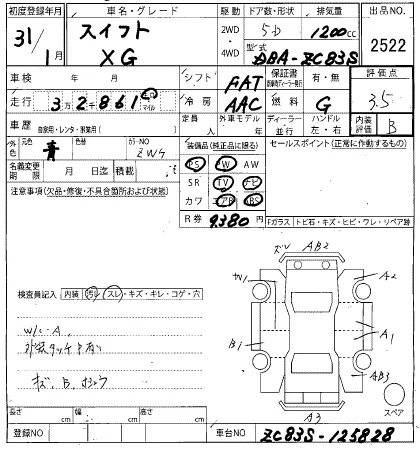 初度登録年月 車名・グレード 駆動 ドア数・形状 排気量 出品NO.
31年 1月 スイフト XG 2WD・4WD 5D 1200cc 2522
型式 DBA-ZC83S
車検 年 月 シフト FAT 保証書 有・無 評価点
走行 3万2千861 km マイル 冷房 AAC 燃料 G 3.5
車歴 自家用・レンタ・事業用( ) 定員 人 外車モデル 年 ディーラー 並行 ハンドル 左・右 内装評価 B
外色 元色 青 色替 カラーNO ZWG 装備品(純正品に限る) セールスポイント(正常に作動するもの)
名義変更期限 月 日迄 積載 PS PW AW
注意事項(欠品・修復・不具合箇所および状態) SR TV ナビ
カワ エアB ABS
R券 9380円 Fガラス トビ石・キズ・ヒビ・ワレ・リペア跡
AB2
W1 A2
検査員記入 内装 汚レ・スレ・キズ・キレ・コゲ・穴
W/C-A B1 A1
外装タッチアップ有
キズ、B、
AB3
スペア
A3
長さ cm 幅 cm 高さ cm
登録NO 車台NO ZC83S-125828